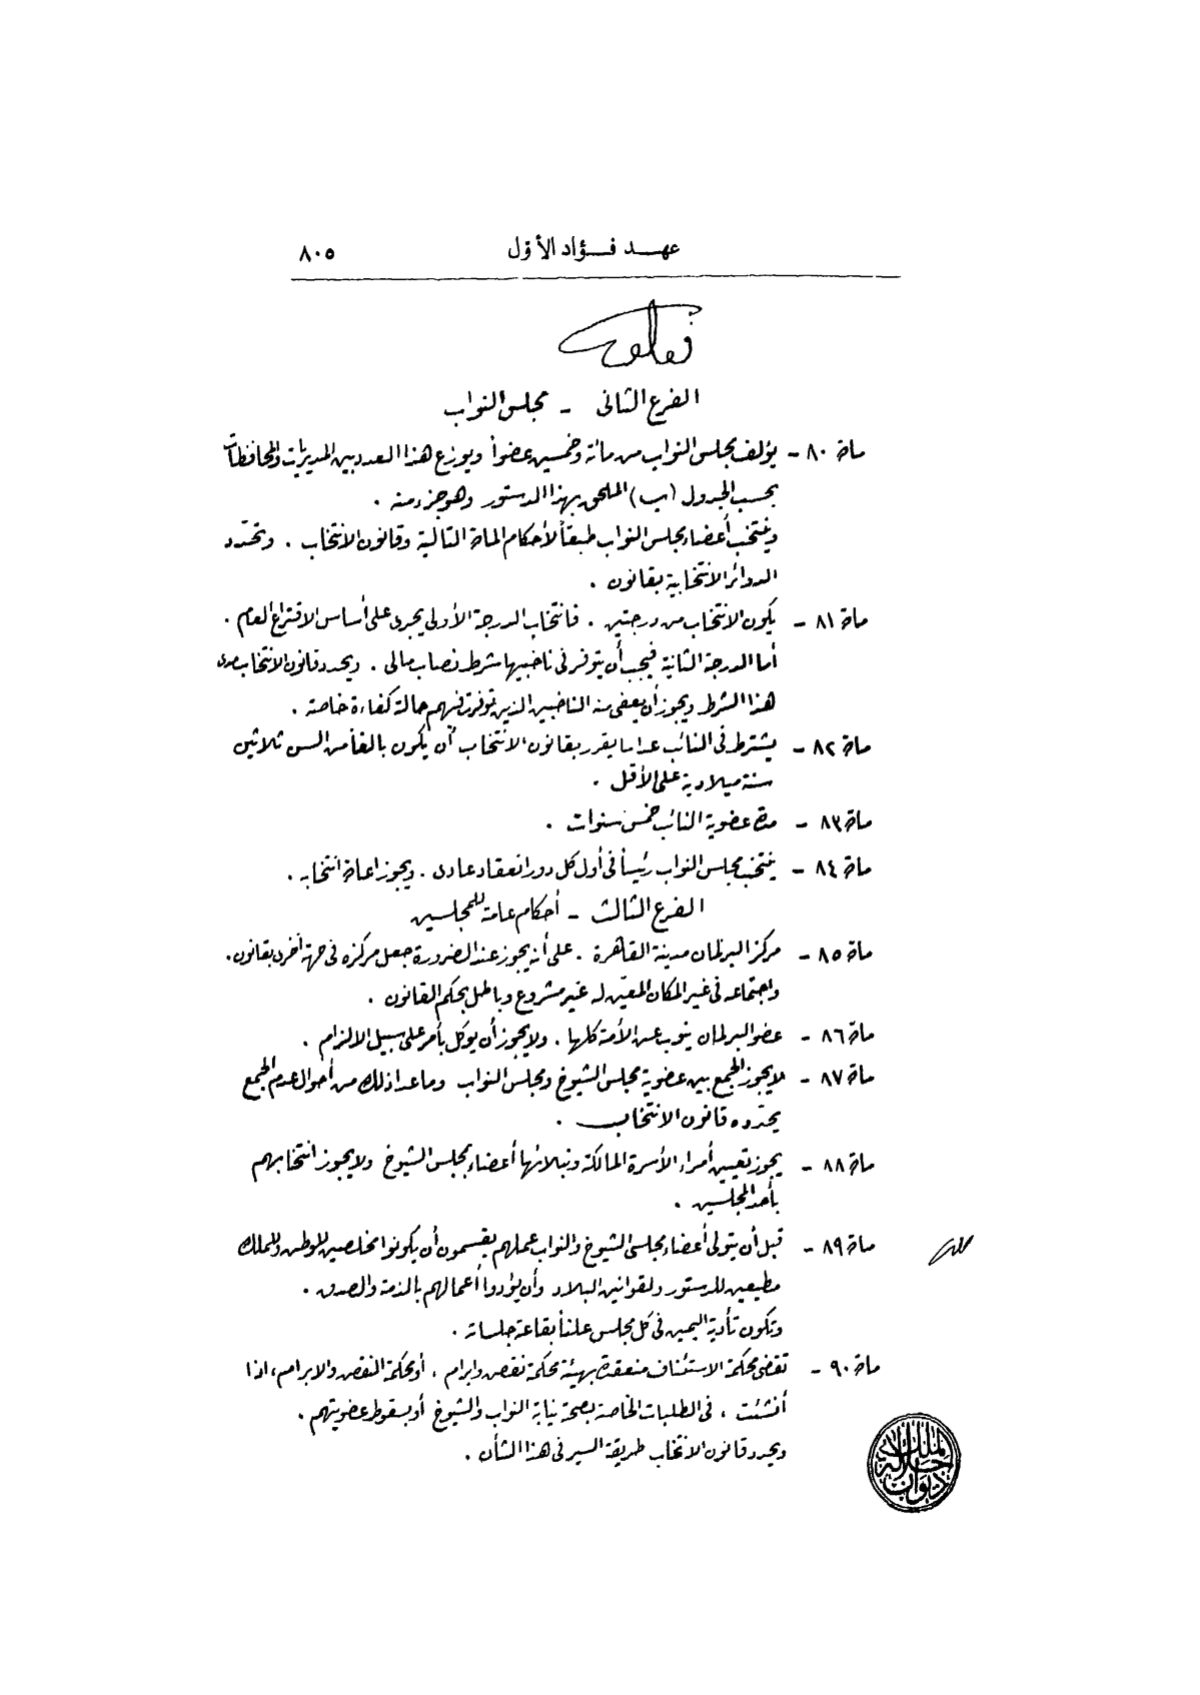 عهد فؤاد الأول
٨٠٥
الفرع الثانى - مجلس النواب
مادة ٨٠ - يؤلف مجلس النواب من مائة وخمسين عضواً ويوزع هذا العدد بين المديريات والمحافظات
بحسب الجدول (ب) الملحق بهذا الدستور وهو جزء منه .
وينتخب أعضاء مجلس النواب طبقاً لأحكام المادة التالية وقانون الانتخاب . وتحدّد
الدوائر الانتخابية بقانون .
مادة ٨١ - يكون الانتخاب من درجتين . فانتخاب الدرجة الأولى يجرى على أساس الاقتراع العام .
أما الدرجة الثانية فيجب أن يتوفر فى ناخبيها شرط نصاب مالى . ويحدد قانون الانتخاب مدى
هذا الشرط ويجوز أن يعفى منه الناخبين الذين توفرت فيهم حالة كفاءة خاصة .
مادة ٨٢ - يشترط فى النائب عدا ما يقرر بقانون الانتخاب أن يكون بالغاً من السن ثلاثين
سنة ميلادية على الأقل .
مادة ٨٣ - مدة عضوية النائب خمس سنوات .
مادة ٨٤ - ينتخب مجلس النواب رئيساً فى أول كل دور انعقاد عادى . ويجوز اعادة انتخابه .
الفرع الثالث - أحكام عامة للمجلسين
مادة ٨٥ - مركز البرلمان مدينة القاهرة . على أنه يجوز عند الضرورة جعل مركزه فى جهة أخرى بقانون .
واجتماعه فى غير المكان المعيّن له غير مشروع وباطل بحكم القانون .
مادة ٨٦ - عضو البرلمان ينوب عن الأمة كلها . ولا يجوز أن يوكل بأمر على سبيل الالزام .
مادة ٨٧ - لا يجوز الجمع بين عضوية مجلس الشيوخ ومجلس النواب وما عدا ذلك من أحوال عدم الجمع
يحدّده قانون الانتخاب .
مادة ٨٨ - يجوز تعيين أمراء الأسرة المالكة ونبلائها أعضاء بمجلس الشيوخ ولا يجوز انتخابهم
بأحد المجلسين .
مادة ٨٩ - قبل أن يتولى أعضاء مجلسى الشيوخ والنواب عملهم يقسمون أن يكونوا مخلصين للوطن وللملك
مطيعين للدستور ولقوانين البلاد وأن يؤدوا أعمالهم بالذمة والصدق .
وتكون تأدية اليمين فى كل مجلس علناً بقاعة جلساته .
مادة ٩٠ - تقضى محكمة الاستئناف منعقدة بهيئة محكمة نقض وابرام ، أو محكمة النقض والابرام ، اذا
أنشئت ، فى الطلبات الخاصة بصحة نيابة النواب والشيوخ أو بسقوط عضويتهم .
ويحدد قانون الانتخاب طريقة السير فى هذا الشأن .
ديوان جلالة الملك